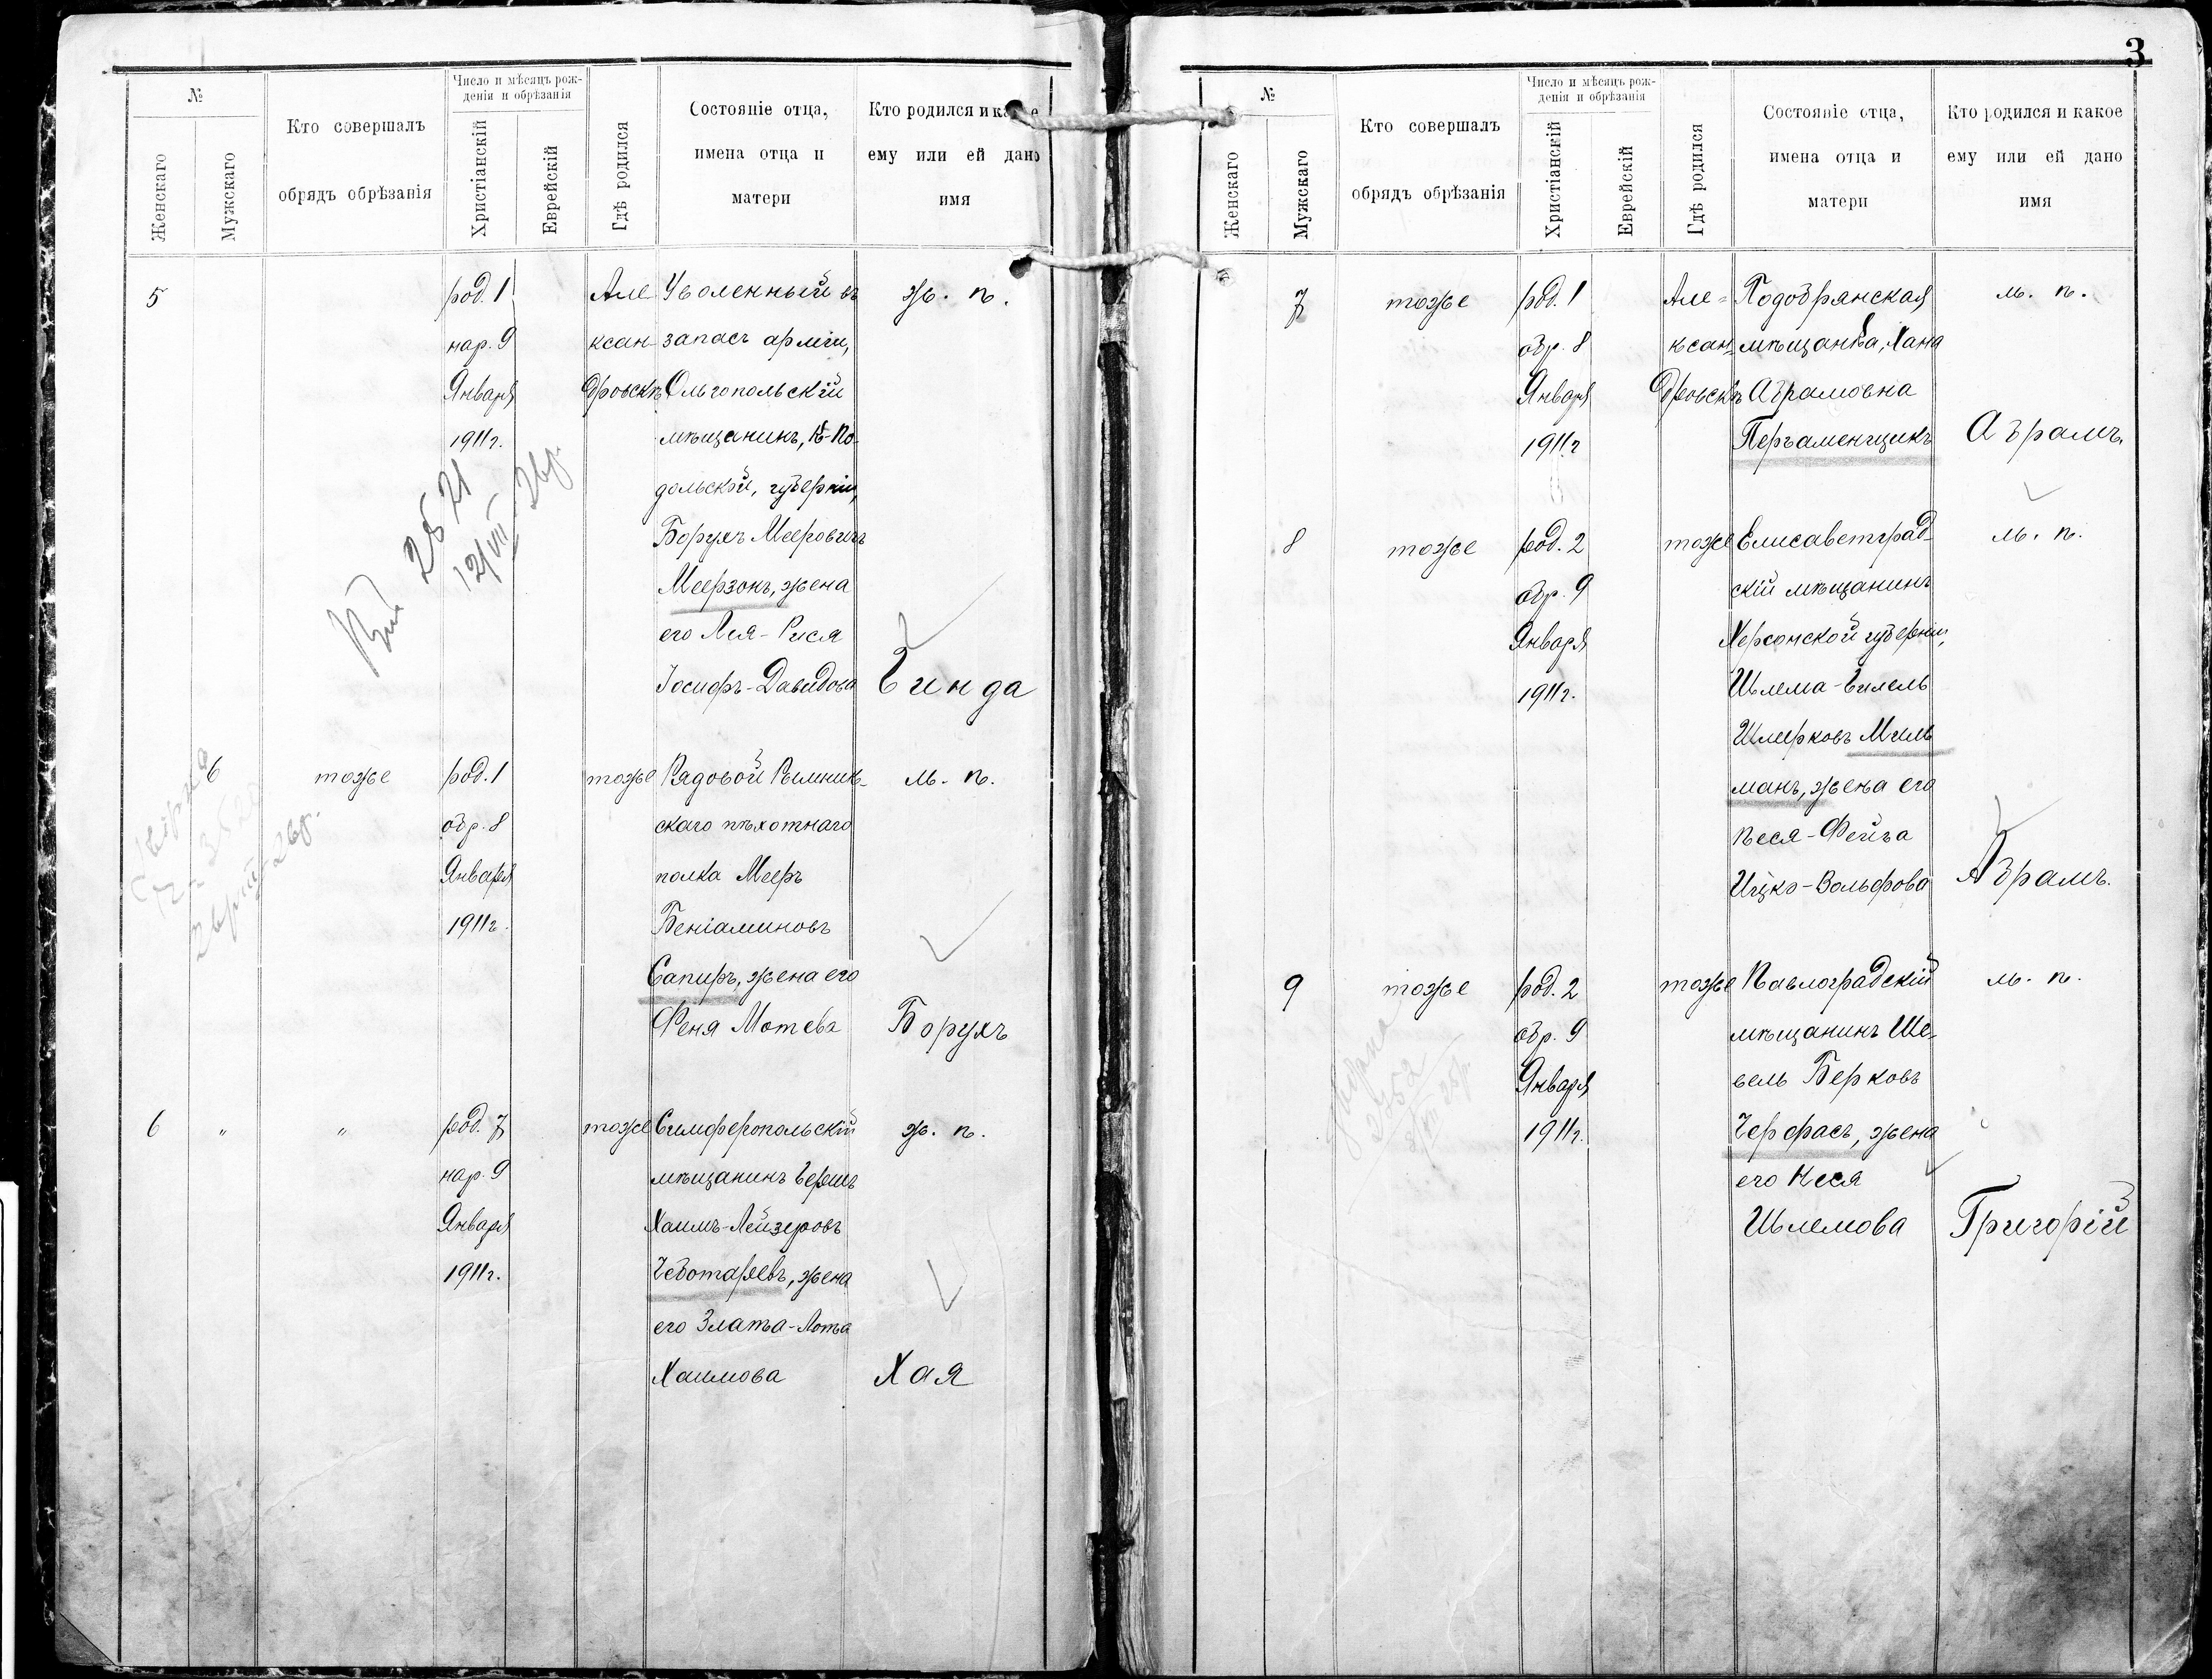 №
Женскаго
Мужскаго
Кто совершалъ
обрядъ обрѣзанія
Число и мѣсяцъ рож-
денія и обрѣзанія
Христіанскій
Еврейскій
Гдѣ родился
Состояніе отца,
имена отца и
матери
Кто родился и какое
ему или ей дано
имя
5
род. 1
нар. 9
Января
1911 г.
Але
ксан-
дровскъ
Уволенный въ
запасъ арміи,
Ольгопольскій
мѣщанинъ, По-
дольской, губерніи,
Борухъ Мееровичъ
Меерзонъ, жена
его Лея-Рися
Іосифъ-Давидова
ж. п.
Гинда
2521
12/VII 26г.
6
тоже
род. 1
обр. 8
Января
1911 г.
тоже
Рядовой Рымник-
скаго пѣхотнаго
полка Мееръ
Беніаминовъ
Сапиръ, жена его
Феня Мотева
м. п.
Борухъ
6 " "
род. 7
нар. 9
Января
1911 г.
тоже
Симферопольскій
мѣщанинъ Гершъ
Хаимъ-Лейзеровъ
Чеботаревъ, жена
его Злата-Лотта
Хаимова
ж. п.
Хая
3
№
Женскаго
Мужскаго
Кто совершалъ
обрядъ обрѣзанія
Число и мѣсяцъ рож-
денія и обрѣзанія
Христіанскій
Еврейскій
Гдѣ родился
Состояніе отца,
имена отца и
матери
Кто родился и какое
ему или ей дано
имя
7
тоже
род. 1
обр. 8
Января
1911 г
Але-
ксан-
дровскъ
Подобрянская
мѣщанка, Хана
Абрамовна
Пергаменщикъ
м. п.
Абрамъ.
8
тоже
род. 2
обр. 9
Января
1911 г.
тоже
Елисаветград-
скій мѣщанинъ
Херсонской губерніи,
Шлема-Гилель
Шмерковъ Миль
манъ, жена его
Песя-Фейга
Ицко-Вольфова
м. п.
Абрамъ.
9
тоже
род. 2
обр. 9
Января
1911 г.
тоже
Павлоградскій
мѣщанинъ Ше-
вель Берковъ
Черфасъ, жена
его Кеся
Шлемова
м. п.
Григорій